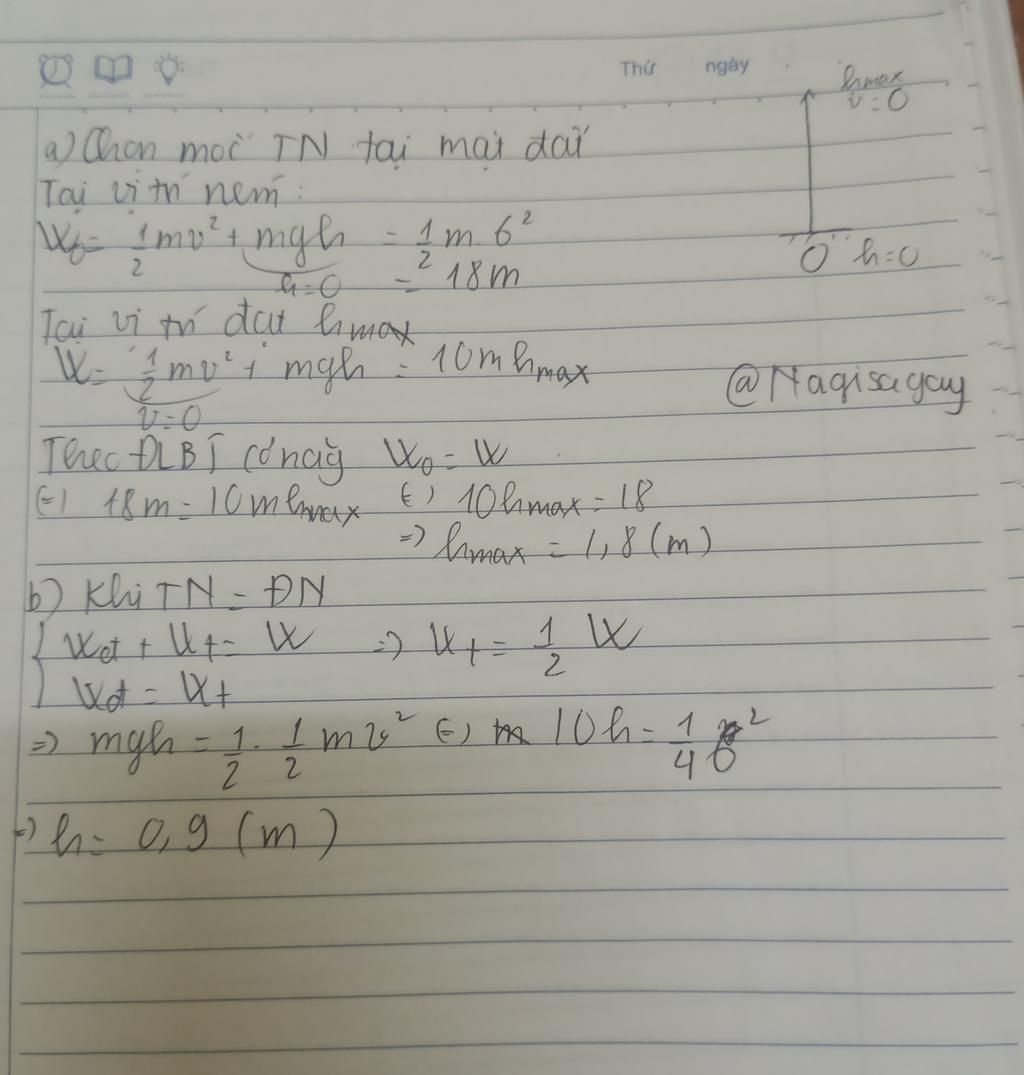 Thứ ngày
hmax
v=0
a) Chọn mốc TN tại mặt đất
Tại vị trí ném:
W₀ = 1/2 mv² + mgh = 1/2 m 6²
h=0 = 18m
O h=0
Tại vị trí đạt hmax
W = 1/2 mv² + mgh = 10mhmax
v=0
@Nagisagay
Theo ĐLBT cơ năg W₀ = W
(=) 18m = 10mhmax (=) 10hmax = 18
=> hmax = 1,8 (m)
b) Khi TN = ĐN
{ Wđ + Wt = W => Wt = 1/2 W
Wđ = Wt
=> mgh = 1/2 . 1/2 mv² (=) 10h = 1/4 6²
=> h = 0,9 (m)